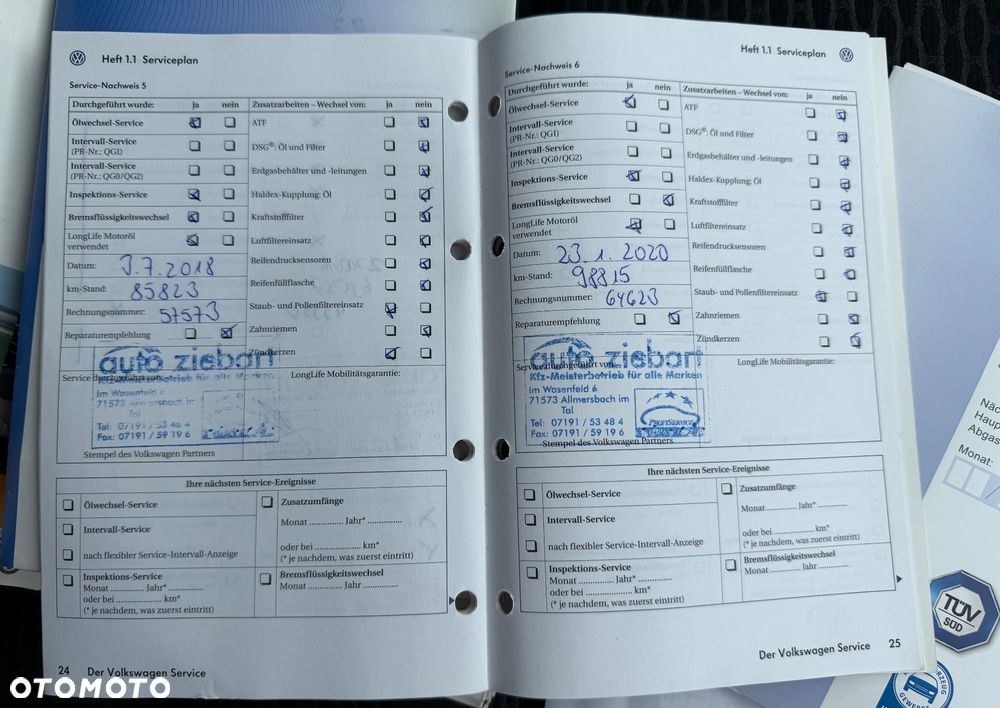 Heft 1.1 Serviceplan
Service-Nachweis 5
Durchgeführt wurde: ja nein Zusatzarbeiten – Wechsel von: ja nein
Ölwechsel-Service ATF
Intervall-Service
(PR-Nr.: QG1) DSG®: Öl und Filter
Intervall-Service
(PR-Nr.: QG0/QG2) Erdgasbehälter und -leitungen
Inspektions-Service Haldex-Kupplung: Öl
Bremsflüssigkeitswechsel Kraftstofffilter
LongLife Motoröl
verwendet Luftfiltereinsatz
Datum: 3.7.2018 Reifendrucksensoren
km-Stand: 85823 Reifenfüllflasche
Rechnungsnummer: 57573 Staub- und Pollenfiltereinsatz
Reparaturempfehlung Zahnriemen
Zündkerzen
auto ziebart
Service durchgeführt von: LongLife Mobilitätsgarantie:
Kfz-Meisterbetrieb für alle Marken
Im Wasenfeld 6
71573 Allmersbach im
Tal
Tel: 07191 / 53 48 4
Fax: 07191 / 59 19 6
Stempel des Volkswagen Partners
Ihre nächsten Service-Ereignisse
Ölwechsel-Service Zusatzumfänge
Monat .............. Jahr* ..............
Intervall-Service
oder bei .................... km*
nach flexibler Service-Intervall-Anzeige (* je nachdem, was zuerst eintritt)
Inspektions-Service Bremsflüssigkeitswechsel
Monat .............. Jahr* .............. Monat .............. Jahr ..............
oder bei .................... km*
(* je nachdem, was zuerst eintritt)
24 Der Volkswagen Service
Heft 1.1 Serviceplan
Service-Nachweis 6
Durchgeführt wurde: ja nein Zusatzarbeiten – Wechsel von: ja nein
Ölwechsel-Service ATF
Intervall-Service
(PR-Nr.: QG1) DSG®: Öl und Filter
Intervall-Service
(PR-Nr.: QG0/QG2) Erdgasbehälter und -leitungen
Inspektions-Service Haldex-Kupplung: Öl
Bremsflüssigkeitswechsel Kraftstofffilter
LongLife Motoröl
verwendet Luftfiltereinsatz
Datum: 23.1.2020 Reifendrucksensoren
km-Stand: 98815 Reifenfüllflasche
Rechnungsnummer: 64623 Staub- und Pollenfiltereinsatz
Reparaturempfehlung Zahnriemen
Zündkerzen
auto ziebart
Service durchgeführt von: LongLife Mobilitätsgarantie:
Kfz-Meisterbetrieb für alle Marken
Im Wasenfeld 6
71573 Allmersbach im
Tal
Tel: 07191 / 53 48 4
Fax: 07191 / 59 19 6
PROFISERVICE
Stempel des Volkswagen Partners
Ihre nächsten Service-Ereignisse
Ölwechsel-Service Zusatzumfänge
Monat .............. Jahr* ..............
Intervall-Service
oder bei .................... km*
nach flexibler Service-Intervall-Anzeige (* je nachdem, was zuerst eintritt)
Inspektions-Service Bremsflüssigkeitswechsel
Monat .............. Jahr* .............. Monat .............. Jahr ..............
oder bei .................... km*
(* je nachdem, was zuerst eintritt)
Der Volkswagen Service 25
Näc
Haup
Abgas
Monat:
TÜV
SÜD
OTOMOTO